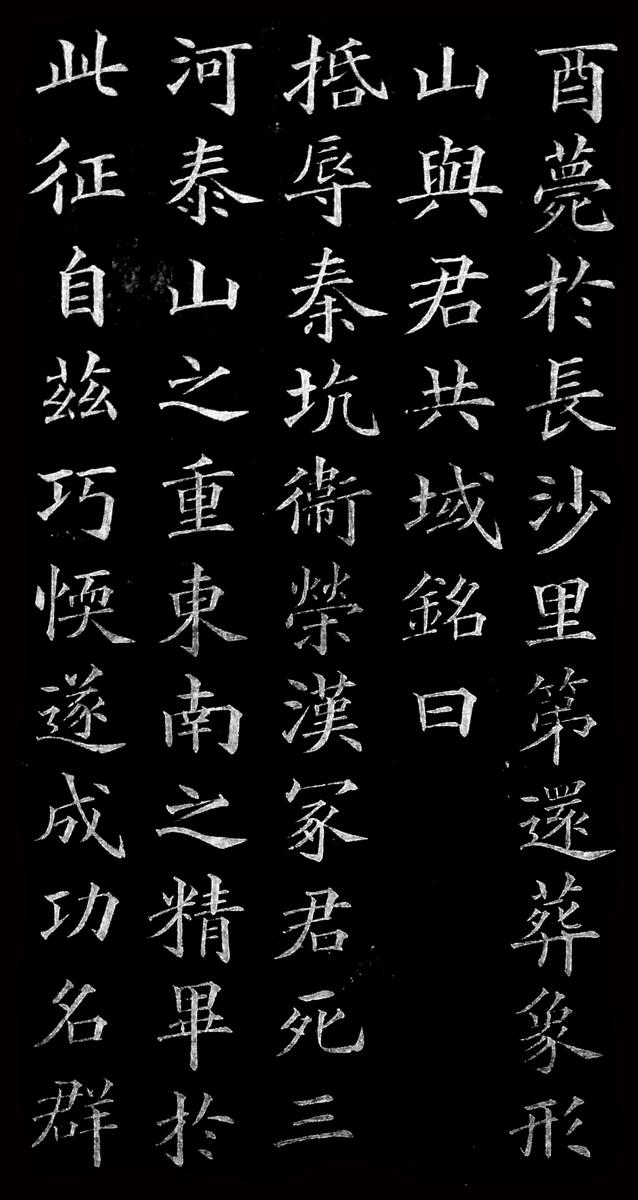 酉薨於長沙里第還葬象形
山與君共域銘曰
搘辱秦坑衞榮漢冢君死三
河泰山之重東南之精畢於
此征自茲巧愞遂成功名群